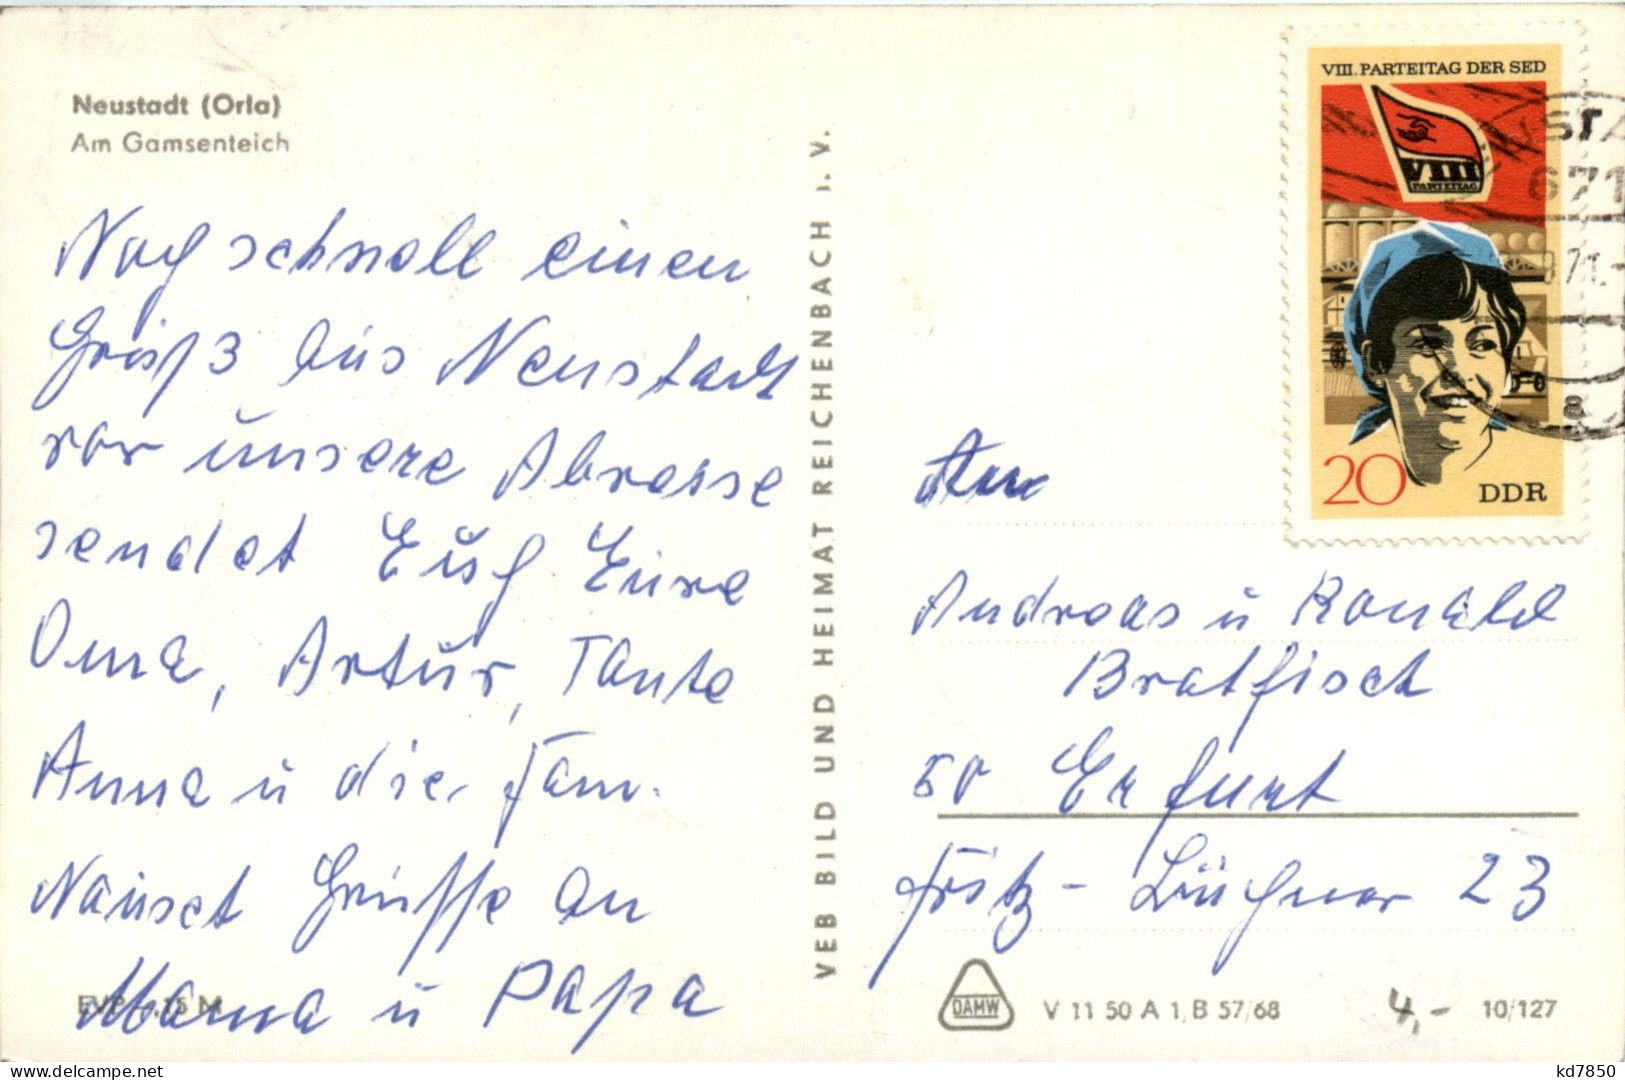 Neustadt (Orla)
Am Gamsenteich
Noch schnell einen
Gruß aus Neustadt
vor unsere Abresse
sendet Euch Eure
Oma, Artur, Tante
Anna u die Fam.
Grüsse an
Mama u Papa
EVP -,15 M
VEB BILD UND HEIMAT REICHENBACH i. V.
VIII. PARTEITAG DER SED
VIII
PARTEITAG
20 DDR
671
a
An
Andreas u Ronald
Bratfisch
50 Erfurt
Fritz-Büchner 23
DAMW
V 11 50 A 1, B 57/68
4,-
10/127
kd7850